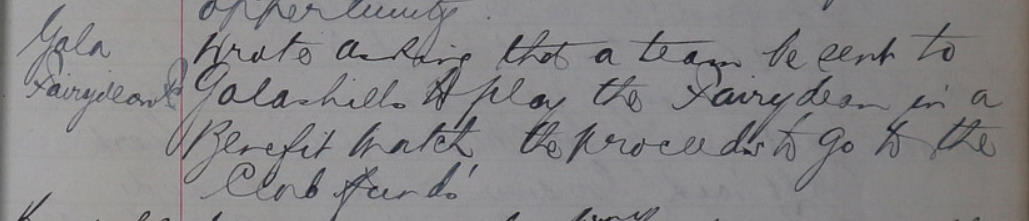 opportunity.
Gala wrote asking that a team be sent to
Fairydean Galashiels to play the Fairydean in a
Benefit match the proceeds to go to the
Club funds